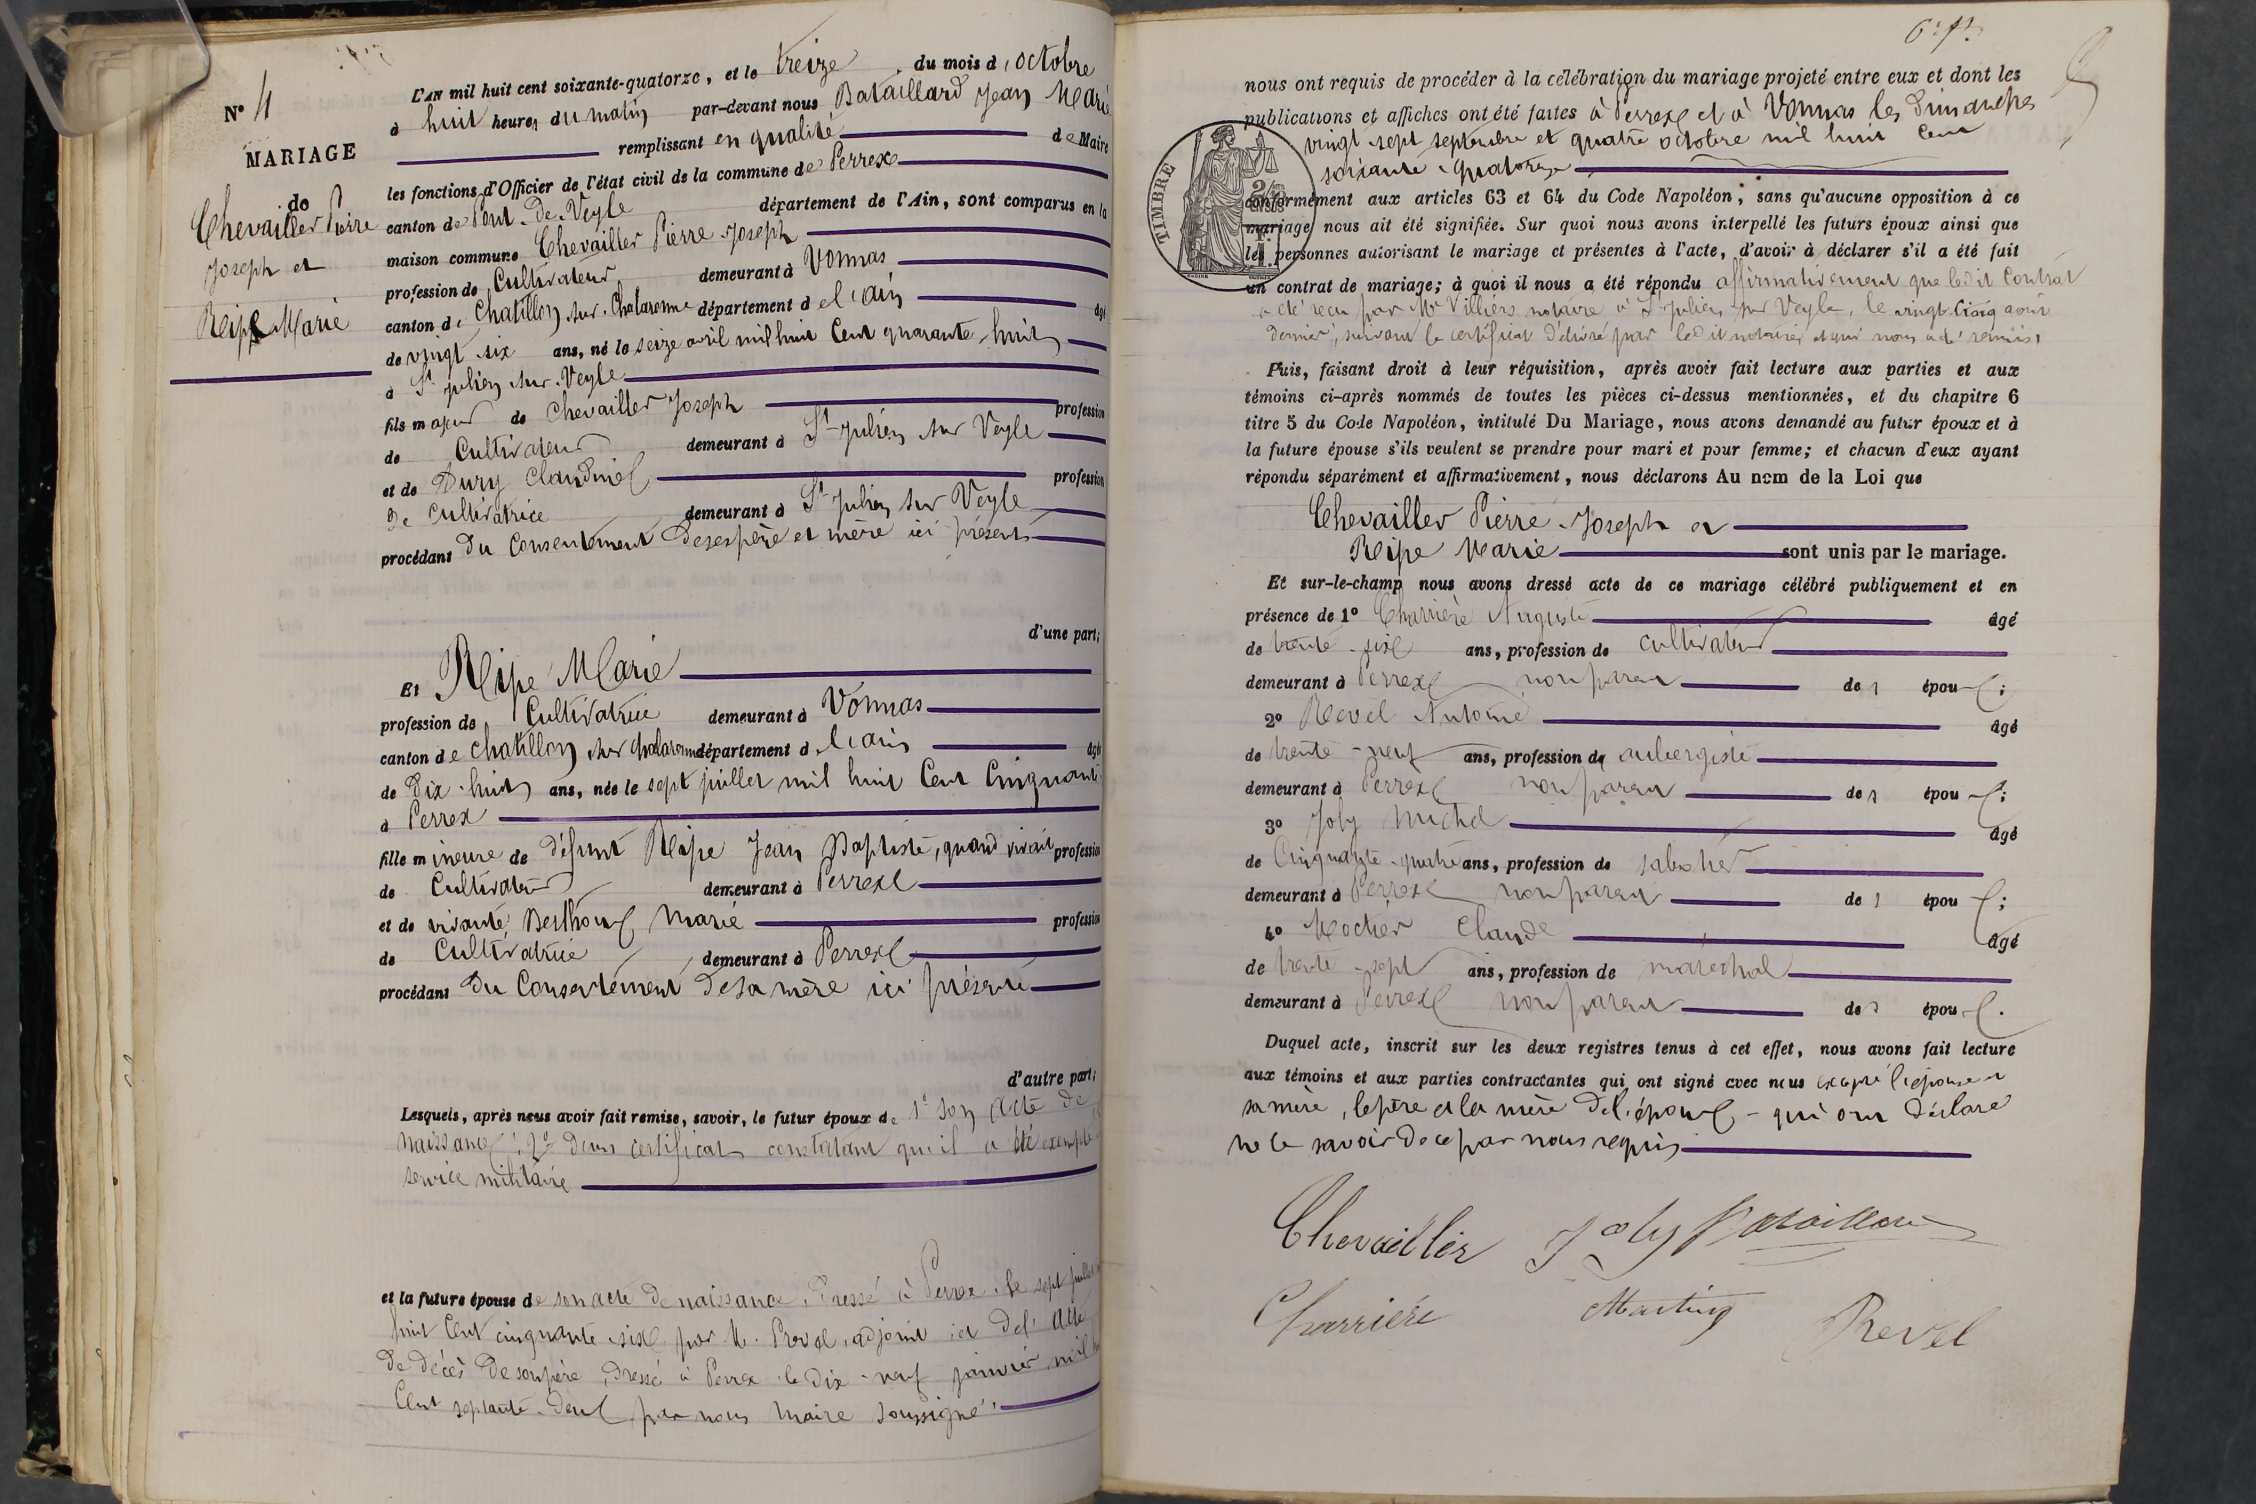 N° 4
MARIAGE
de
Chevailler Pierre
Joseph et
Ripe Marie
L'AN mil huit cent soixante-quatorze, et le treize du mois d'octobre
à huit heures du matin par-devant nous Bataillard Jean Marie
remplissant en qualité de Maire
les fonctions d'Officier de l'état civil de la commune de Perrex
canton de Pont-de-Veyle département de l'Ain, sont comparus en la
maison commune Chevailler Pierre Joseph
profession de Cultivateur demeurant à Vonnas
canton de Chatillon sur Chalaronne département de l'ain âgé
de vingt six ans, né le seize avril mil huit Cent quarante-huit
à St Julien sur Veyle
fils majeur de Chevailler Joseph profession
de Cultivateur demeurant à St Julien sur Veyle
et de Dury Claudine profession
de Cultivatrice demeurant à St Julien sur Veyle
procédant du Consentement de ses père et mère ici présents
d'une part;
Et Ripe Marie
profession de Cultivatrice demeurant à Vonnas
canton de Chatillon sur Chalaronne département de l'ain âgée
de dix-huit ans, née le sept juillet mil huit Cent Cinquante
à Perrex
fille mineure de défunt Ripe Jean Baptiste, quand vivait profession
de Cultivateur demeurant à Perrex
et de vivante Berthoux Marie profession
de Cultivatrice demeurant à Perrex
procédant du Consentement de sa mère ici présente
d'autre part;
Lesquels, après nous avoir fait remise, savoir, le futur époux de 1° son acte de
naissance; 2° d'un certificat constatant qu'il a été exempté
service militaire
et la future épouse de son acte de naissance, dressé à Perrex le sept juillet
huit Cent cinquante six par M. Prevel, adjoint et de l'acte
de décès de son père, dressé à Perrex le dix-neuf janvier mil
Cent septante-deux par nous Maire soussigné.
nous ont requis de procéder à la célébration du mariage projeté entre eux et dont les
publications et affiches ont été faites à Perrex et à Vonnas les dimanches
vingt-sept septembre et quatre octobre mil huit Cent
soixante-quatorze
conformément aux articles 63 et 64 du Code Napoléon; sans qu'aucune opposition à ce
mariage nous ait été signifiée. Sur quoi nous avons interpellé les futurs époux ainsi que
les personnes autorisant le mariage et présentes à l'acte, d'avoir à déclarer s'il a été fait
un contrat de mariage; à quoi il nous a été répondu affirmativement que ledit Contrat
a été reçu par Me Villiers notaire à St Julien sur Veyle, le vingt cinq août
dernier, suivant le certificat délivré par ledit notaire et qui nous a été remis,
Puis, faisant droit à leur réquisition, après avoir fait lecture aux parties et aux
témoins ci-après nommés de toutes les pièces ci-dessus mentionnées, et du chapitre 6
titre 5 du Code Napoléon, intitulé Du Mariage, nous avons demandé au futur époux et à
la future épouse s'ils veulent se prendre pour mari et pour femme; et chacun d'eux ayant
répondu séparément et affirmativement, nous déclarons Au nom de la Loi que
Chevailler Pierre-Joseph et
Ripe Marie sont unis par le mariage.
Et sur-le-champ nous avons dressé acte de ce mariage célébré publiquement et en
présence de 1° Charrière Auguste âgé
de trente-six ans, profession de cultivateur
demeurant à Perrex non parent des époux;
2° Revel Antoine âgé
de trente-neuf ans, profession de aubergiste
demeurant à Perrex non parent des époux;
3° Joly Michel âgé
de Cinquante-quatre ans, profession de sabotier
demeurant à Perrex non parent des époux;
4° Mocher Claude âgé
de trente-sept ans, profession de maréchal
demeurant à Perrex non parent des époux.
Duquel acte, inscrit sur les deux registres tenus à cet effet, nous avons fait lecture
aux témoins et aux parties contractantes qui ont signé avec nous excepté l'épouse et
sa mère, le père et la mère de l'époux qui ont déclaré
ne le savoir de ce par nous requis
Chevailler Joly Bataillard
Charrière Revel
TIMBRE